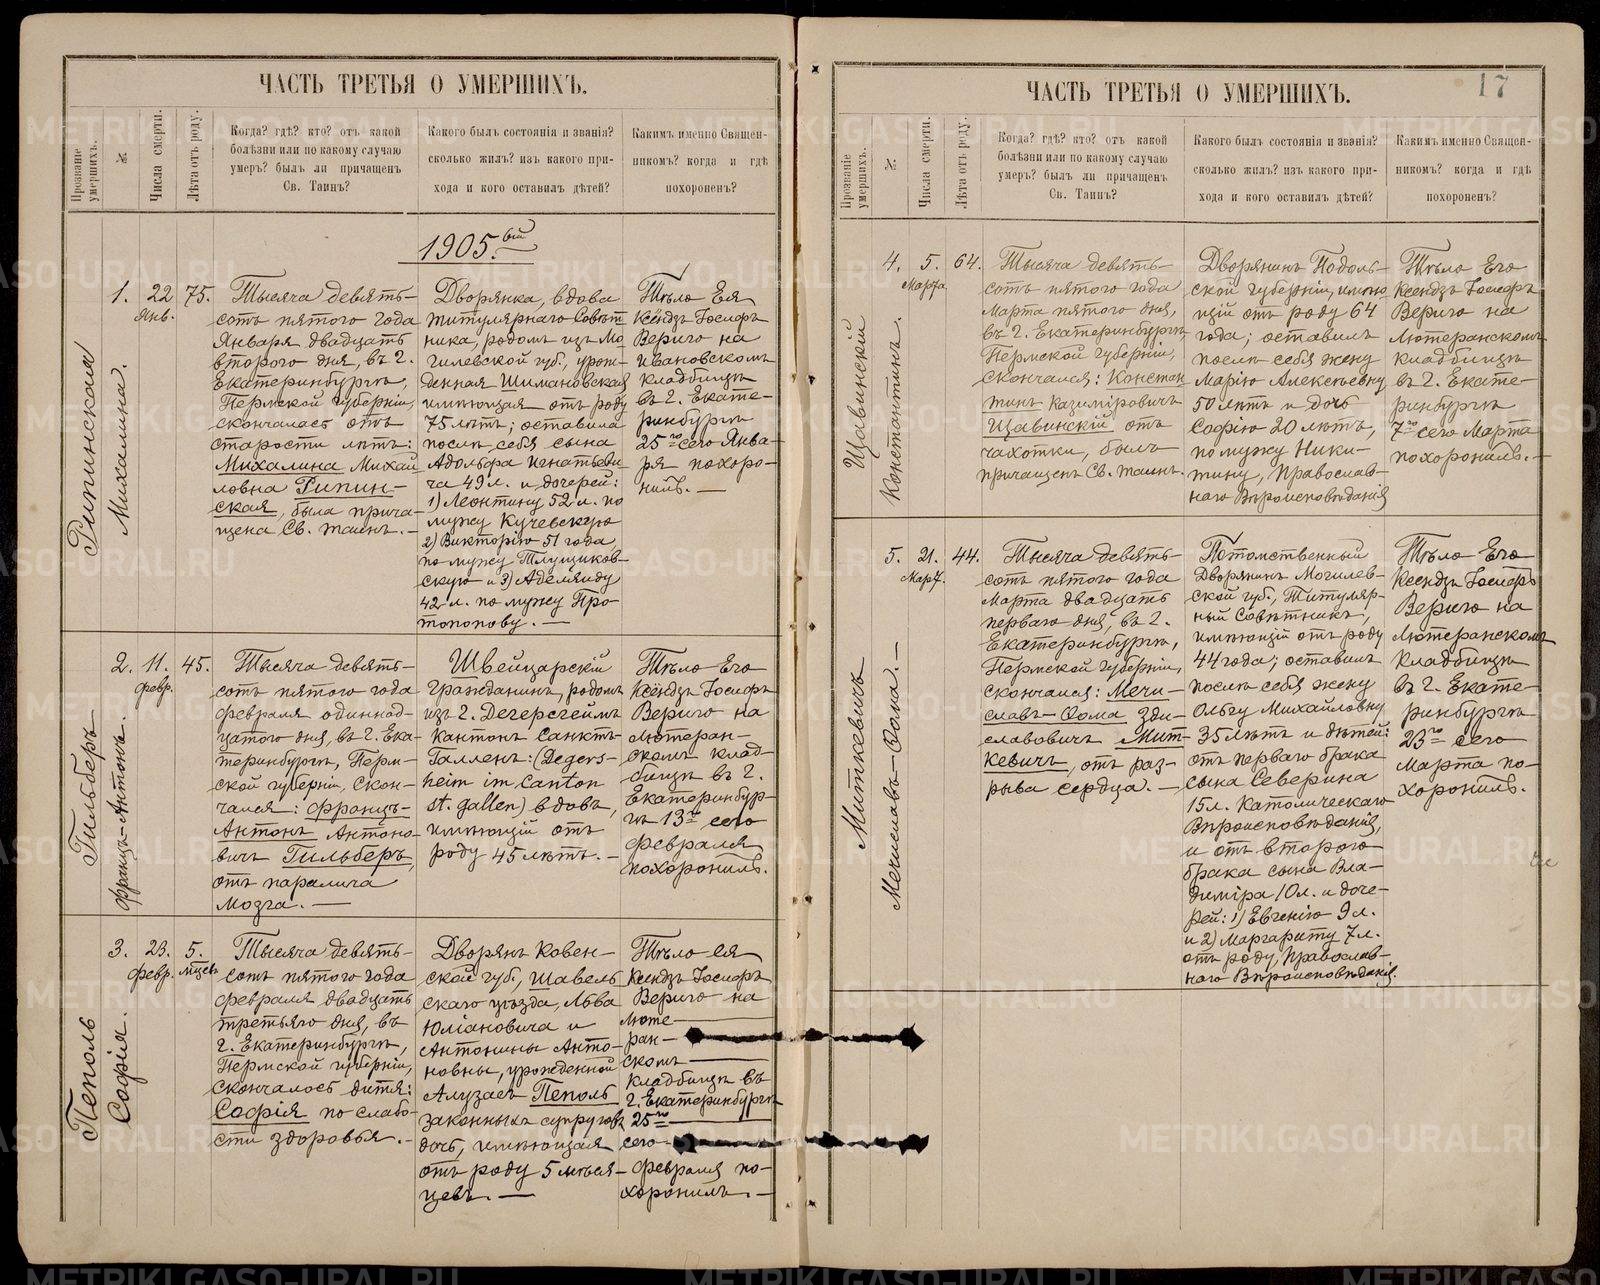 ЧАСТЬ ТРЕТЬЯ О УМЕРШИХЪ.
Прозваніе умершихъ.
№
Числа смерти.
Лѣта отъ роду.
Когда? гдѣ? кто? отъ какой
болѣзни или по какому случаю
умеръ? былъ ли причащенъ
Св. Таинъ?
Какого былъ состоянія и званія?
сколько жилъ? изъ какого при-
хода и кого оставилъ дѣтей?
Какимъ именно Священ-
никомъ? когда и гдѣ
похороненъ?
1905.ый
Рипинская
Михалина.
1.
22
Янв.
75.
Тысяча девять-
сотъ пятого года
Января двадцать
второго дня, въ г.
Екатеринбургѣ,
Пермской губерніи,
скончалась отъ
старости лѣтъ:
Михалина Михай
ловна Рипин-
ская, была прича-
щена Св. таинъ.—
Дворянка, вдова
титулярнаго Совѣт
ника, родомъ изъ Мо
гилевской губ., урож-
денная Шимановская
имѣющая отъ роду
75 лѣтъ; оставила
послѣ себя сына
Адольфа Игнатьеви
ча 49 л. и дочерей:
1) Леонтину 52 л. по
мужу Кучевскую
2) Викторію 51 года
по мужу Тлущиков-
скую и 3) Аделяиду
42 л. по мужу Про-
топопову.—
Тѣло Ея
Ксендзъ Іосифъ
Верию на
Ивановскомъ
кладбищѣ
въ г. Екате-
ринбургѣ
25го сего Янва-
ря похоро-
нилъ.—
Гильберъ
Францъ-Антонъ.
2.
11.
февр.
45.
Тысяча девять-
сотъ пятого года
февраля одиннад-
цатого дня, въ г. Ека-
теринбургѣ, Перм-
ской губерніи, скон-
чался: Францъ-
Антонъ Антоно-
вичъ Гильберъ,
отъ паралича
мозга.—
Швейцарскій
гражданинъ, родомъ
изъ г. Дегерсгеймъ
Кантонъ Санктъ-
Галленъ: (Degers-
heim im Canton
St. gallen) вдовъ,
имѣющій отъ
роду 45 лѣтъ.—
Тѣло Его
Ксендзъ Іосифъ
Верию на
лютеран-
скомъ клад-
бищѣ въ г.
Екатеринбур-
гѣ 13го сего
февраля
похоронилъ.
Пеполь
Софія.
3.
23.
февр.
5.
мѣсев
Тысяча девять-
сотъ пятого года
февраля двадцать
третьяго дня, въ
г. Екатеринбургѣ,
Пермской губерніи,
скончалось дитя:
Софія по слабо-
сти здоровья.—
Дворянъ Ковен-
ской губ., Шавель
скаго уѣзда, Льва
Юліановича и
Антонины Анто-
новны, урожденной
Алузаеъ Пеполь
законныхъ супруговъ
дочь, имѣющая
отъ роду 5 мѣся-
цевъ.—
Тѣло ея
Ксендзъ Іосифъ
Верию на
люте-
ран-
скомъ
кладбищѣ въ
г. Екатеринбургѣ
25го
сего
февраля по-
хоронилъ.—
17
ЧАСТЬ ТРЕТЬЯ О УМЕРШИХЪ.
Прозваніе умершихъ.
№
Числа смерти.
Лѣта отъ роду.
Когда? гдѣ? кто? отъ какой
болѣзни или по какому случаю
умеръ? былъ ли причащенъ
Св. Таинъ?
Какого былъ состоянія и званія?
сколько жилъ? изъ какого при-
хода и кого оставилъ дѣтей?
Какимъ именно Священ-
никомъ? когда и гдѣ
похороненъ?
Щавинскій
Константинъ.
4.
5.
Марта
64.
Тысяча девять-
сотъ пятого года
Марта пятого дня,
въ г. Екатеринбургѣ,
Пермской губерніи,
скончался: Констан
тинъ Казиміровичъ
Щавинскій отъ
чахотки, былъ
причащенъ Св. таинъ.
Дворянинъ Подоль-
ской губерніи, имѣю
щій отъ роду 64
года; оставилъ
послѣ себя жену
Марію Алексѣевну
50 лѣтъ и дочь
Софію 20 лѣтъ,
по мужу Ники-
тину, Православ-
наго Вѣроисповѣданія
Тѣло Его
Ксендзъ Іосифъ
Верию на
лютеранскомъ
кладбищѣ
въ г. Екате-
ринбургѣ
7го сего Марта
похоронилъ.—
Миткевичъ
Мечиславъ-Ѳома.—
5.
21.
Март.
44.
Тысяча девять-
сотъ пятого года
Марта двадцать
перваго дня, въ г.
Екатеринбургѣ,
Пермской губерніи,
скончался: Мечи-
славъ-Ѳома Зди-
славовичъ Мит-
кевичъ, отъ раз-
рыва сердца.—
Потомственный
Дворянинъ Могилев-
ской губ., Титуляр-
ный Совѣтникъ,
имѣющій отъ роду
44 года; оставилъ
послѣ себя жену
Ольгу Михайловну
35 лѣтъ и дѣтей:
отъ перваго брака
сына Северина
15 л. католическаго
Вѣроисповѣданія,
и отъ второго
брака сына Вла-
диміра 10 л. и доче-
рей: 1) Евгенію 9 л.
и 2) Маргариту 7 л.
отъ роду, Православ-
наго Вѣроисповѣданія.
Тѣло Его
Ксендзъ Іосифъ
Верию на
Лютеранскомъ
кладбищѣ
въ г. Екате-
ринбургѣ
23го сего
Марта по-
хоронилъ.
METRIKI.GASO-URAL.RU